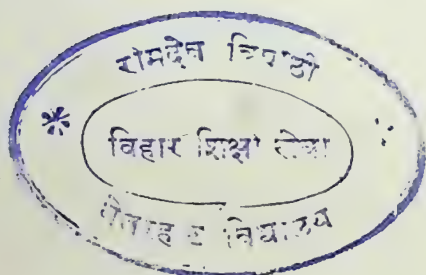 रामदेव त्रिपाठी
विहार शिक्षा सेवा
विद्यालय